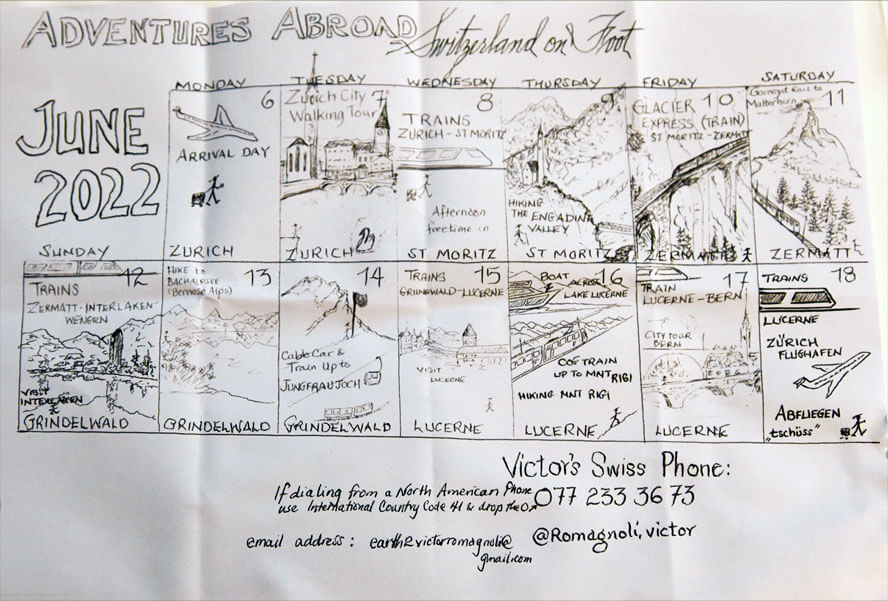 ADVENTURES ABROAD Switzerland on Foot
JUNE
2022
MONDAY
6
ARRIVAL DAY
ZURICH
TUESDAY
7
Zurich City
Walking Tour
ZURICH
WEDNESDAY
8
TRAINS
ZURICH - ST MORITZ
Afternoon
free time in
ST MORITZ
THURSDAY
9
HIKING
THE ENGADINE
VALLEY
ST MORITZ
FRIDAY
10
GLACIER
EXPRESS (TRAIN)
ST MORITZ - ZERMATT
ZERMATT
SATURDAY
11
Rail to
Matterhorn
ZERMATT
SUNDAY
12
TRAINS
ZERMATT - INTERLAKEN
WENGERN
VISIT
INTERLAKEN
GRINDELWALD
13
HIKE to
BACHALPSEE
(Bernese Alps)
GRINDELWALD
14
Cable Car &
Train Up to
JUNGFRAUJOCH
GRINDELWALD
15
TRAINS
GRINDWALD - LUCERNE
VISIT
LUCERNE
LUCERNE
16
BOAT ACROSS
LAKE LUCERNE
COG TRAIN
UP TO MNT RIGI
HIKING MNT RIGI
LUCERNE
17
TRAIN
LUCERNE - BERN
CITY TOUR
BERN
LUCERNE
18
TRAINS
LUCERNE
ZÜRICH
FLUGHAFEN
ABFLIEGEN
„tschüss"
Victor's Swiss Phone:
If dialing from a North American Phone
use International Country Code 41 & drop the 0
077 233 36 73
email address : earth2victorromagnoli@
gmail.com
@Romagnoli, victor